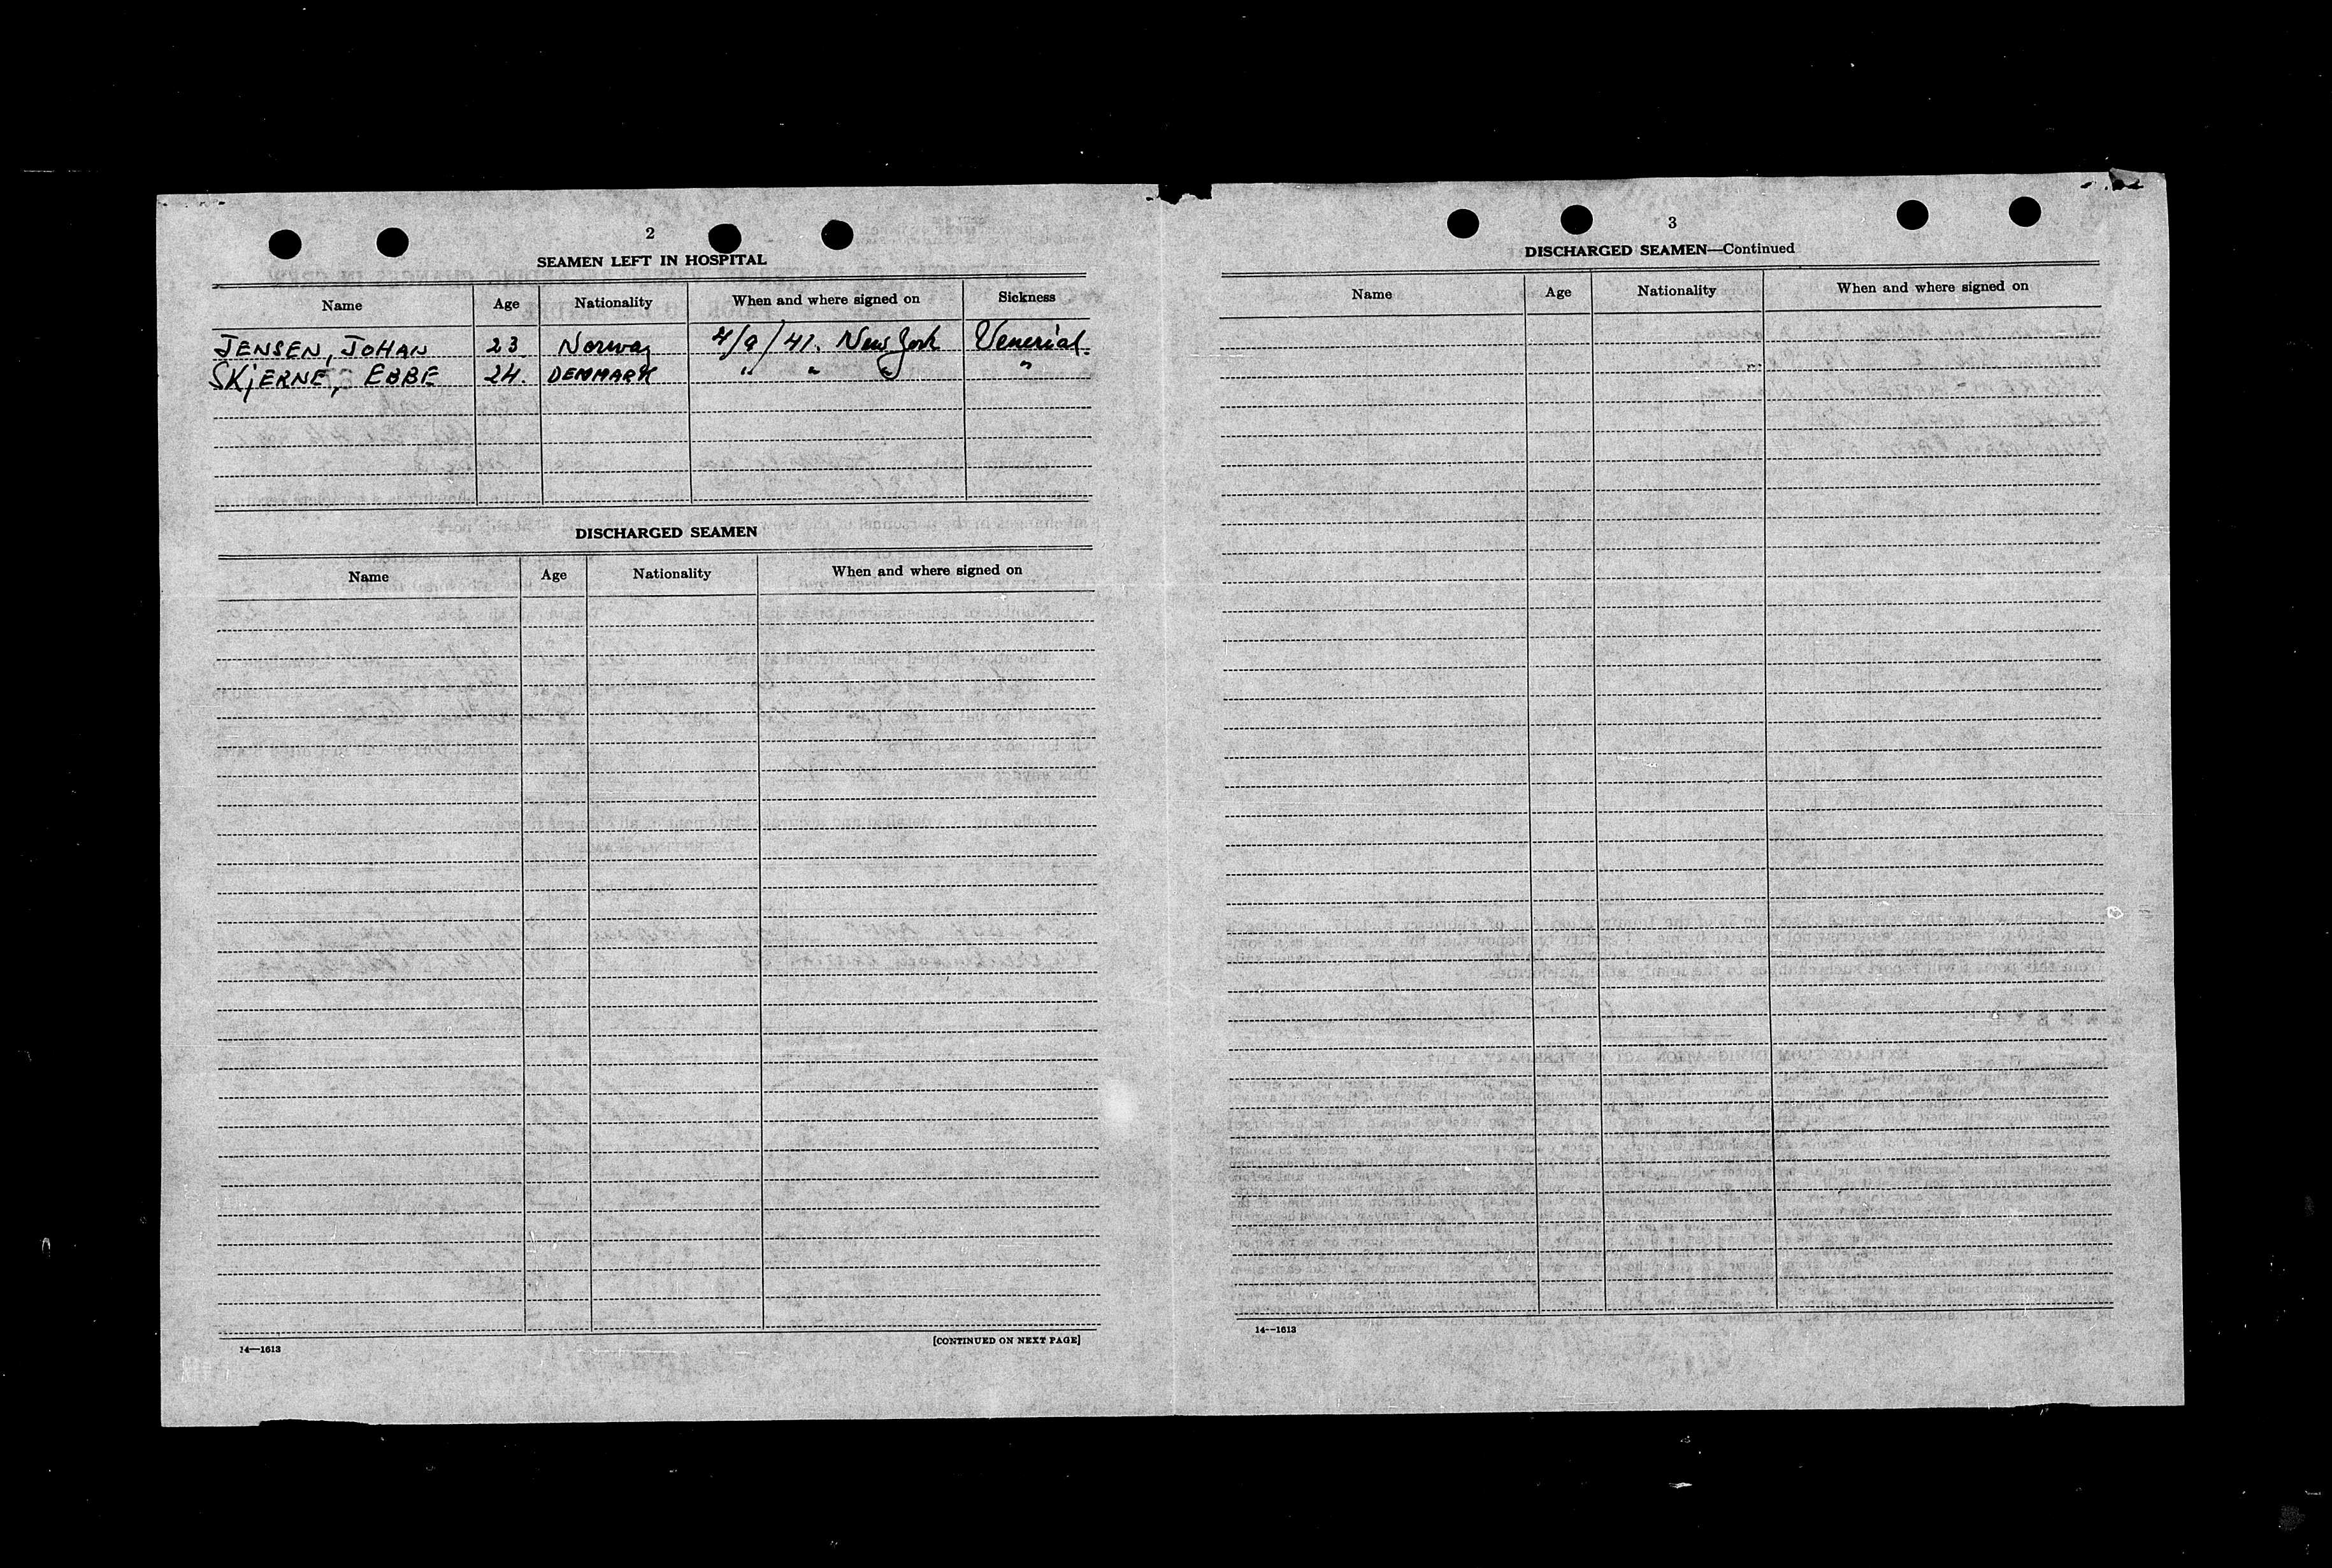 2
SEAMEN LEFT IN HOSPITAL
Name Age Nationality When and where signed on Sickness
JENSEN, JOHAN 23 Norway 4/9/41. New York Venerial.
SKJERNE, EBBE 24. DENMARK " " " "
DISCHARGED SEAMEN
Name Age Nationality When and where signed on
[CONTINUED ON NEXT PAGE]
14—1613
3
DISCHARGED SEAMEN—Continued
Name Age Nationality When and where signed on
14—1613